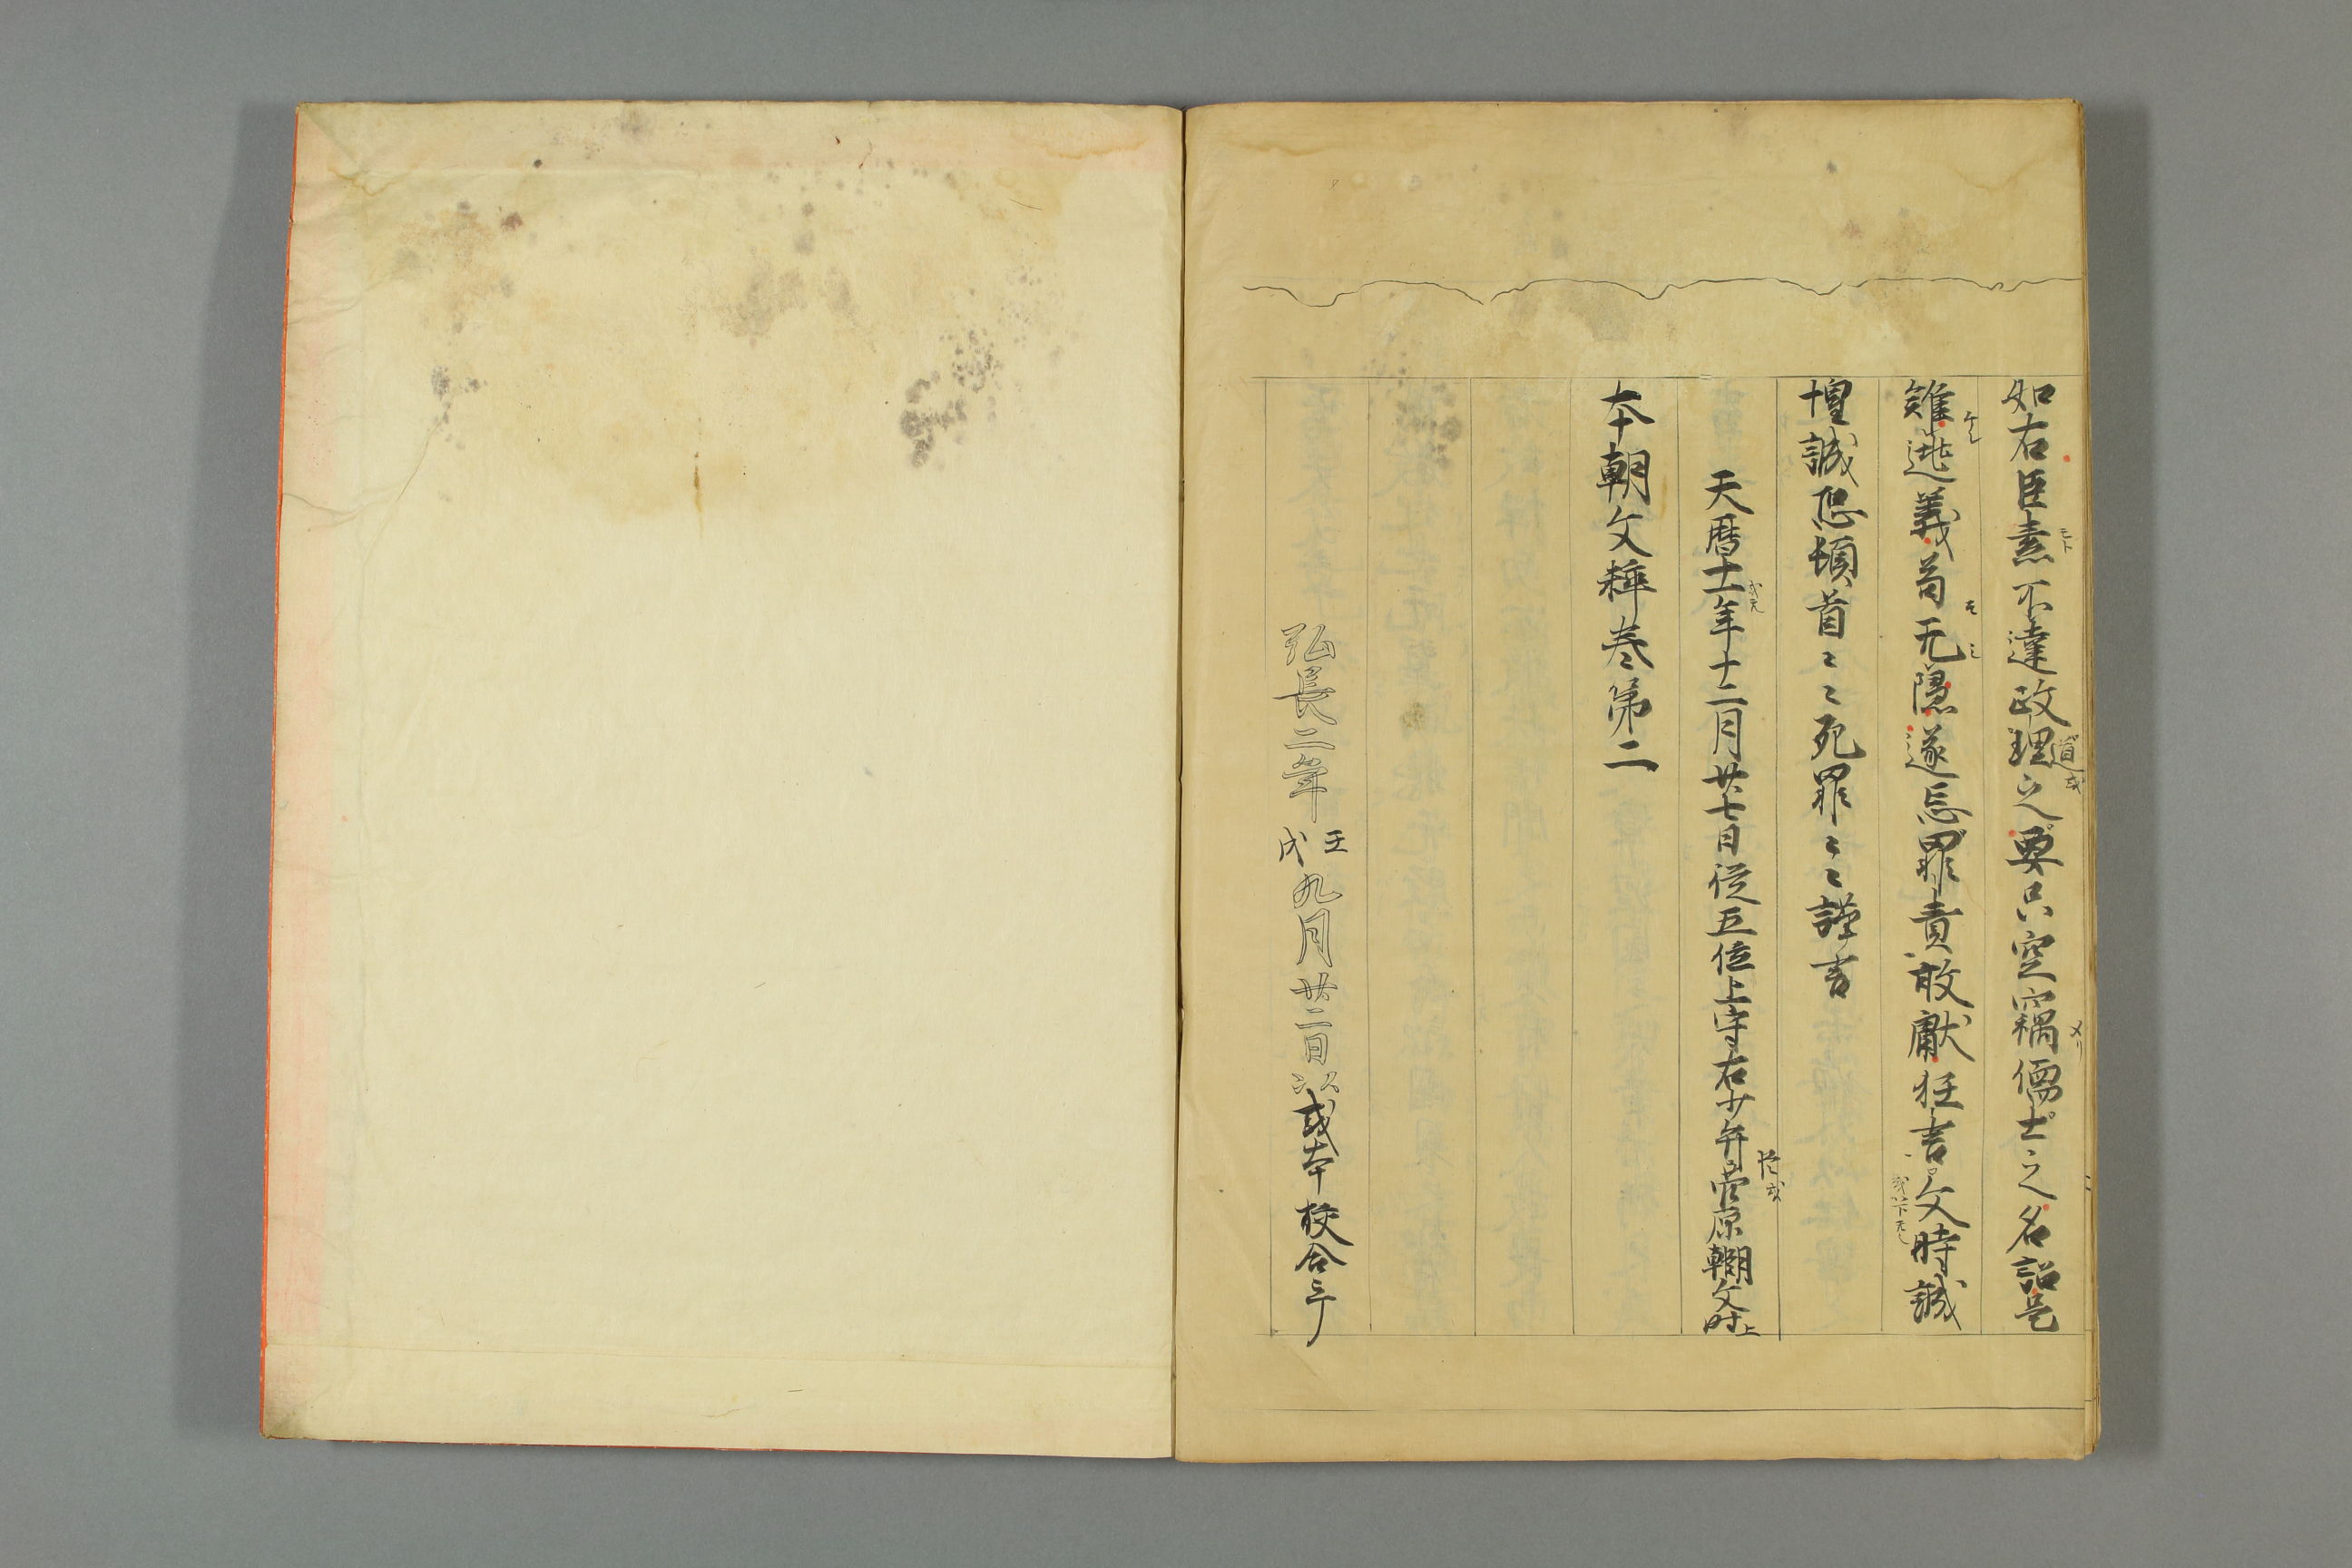 如右臣素不達政理之要只空竊儒士之名詔是
雖逃義苟无隠遂忘罪責敢獻狂言文時誠
惶誠恐頓首〻〻死罪〻〻謹言
天暦十一年十二月廿七日従五位上守右少弁菅原朝臣文時上
本朝文粹巻第二
弘長二年壬戌九月廿二日以或本校合了